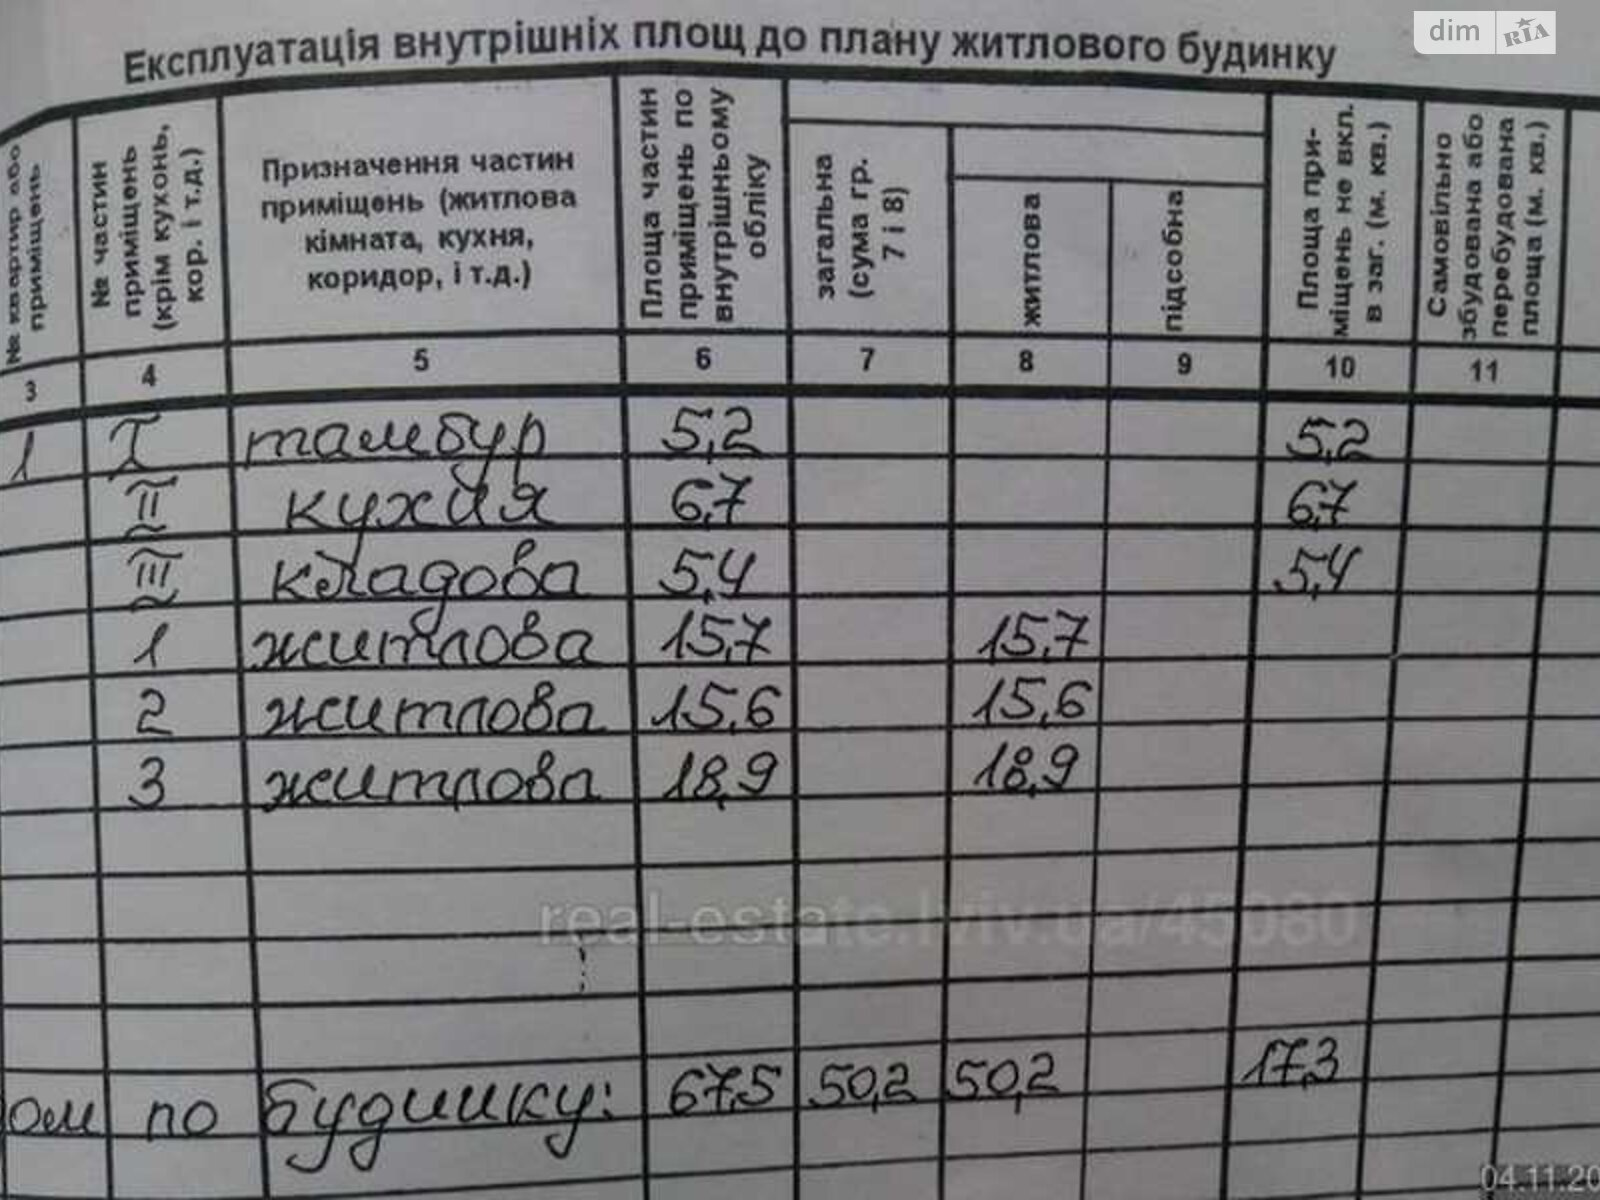 dim RIA
Експлуатація внутрішніх площ до плану житлового будинку
№ квартир або приміщень
№ частин приміщень (крім кухонь, кор. і т.д.)
Призначення частин
приміщень (житлова
кімната, кухня,
коридор, і т.д.)
Площа частин приміщень по внутрішньому обліку
загальна (сума гр. 7 і 8)
житлова
підсобна
Площа приміщень не вкл. в заг. (м. кв.)
Самовільно збудована або перебудована площа (м. кв.)
3 4 5 6 7 8 9 10 11
1 I тамбур 5,2 5,2
II кухня 6,7 6,7
III кладова 5,4 5,4
1 житлова 15,7 15,7
2 житлова 15,6 15,6
3 житлова 18,9 18,9
real-estate.lviv.ua/45080
ом по будинку: 67,5 50,2 50,2 17,3
04.11.20